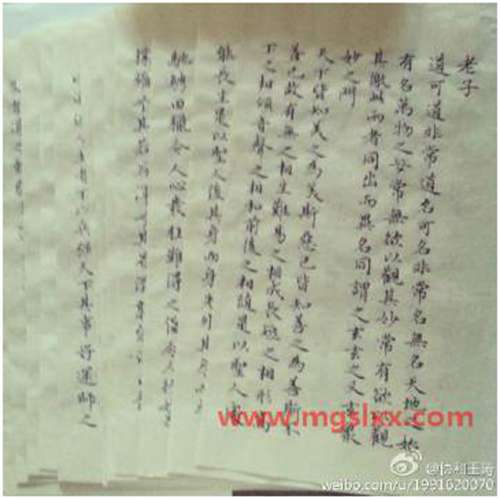 老子
道可道非常道名可名非常名無名天地之始
有名萬物之母常無欲以觀其妙常有欲以觀
其徼此兩者同出而異名同謂之玄玄之又玄衆
妙之門
天下皆知美之為美斯惡已皆知善之為善斯不
善已故有無之相生難易之相成長短之相形高
下之相傾音聲之相和前後之相隨是以聖人處
能長生是以聖人後其身而身先外其身
馳騁田獵令人心發狂難得之貨令人
以兵强天下其事好還師之
www.mgslxx.com
@协和王涛
weibo.com/u/1991620070